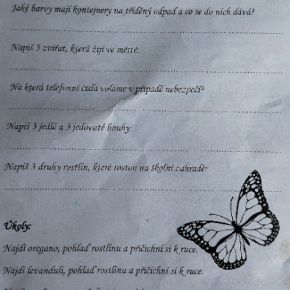 Jaké barvy mají kontejnery na tříděný odpad a co se do nich dává?
Napiš 5 zvířat, která žijí ve městě:
Na která telefonní čísla voláme v případě nebezpečí?
Napiš 3 jedlé a 3 jedovaté houby:
Napiš 3 druhy rostlin, které rostou na školní zahradě:
Úkoly:
Najdi oregano, pohlaď rostlinu a přičichni si k ruce.
Najdi levanduli, pohlaď rostlinu a přičichni si k ruce.